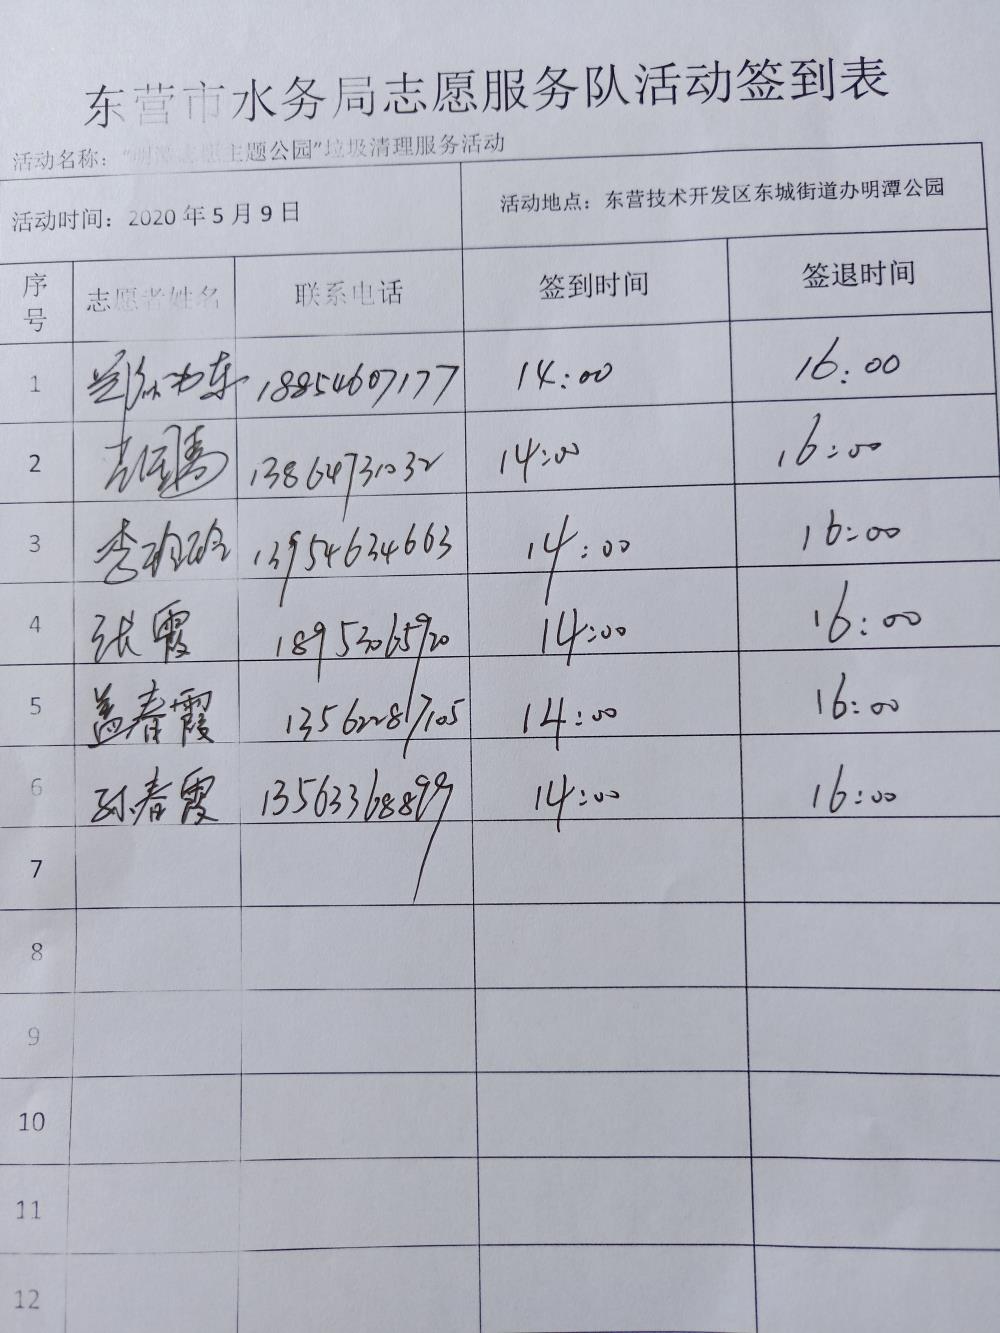 东营市水务局志愿服务队活动签到表
活动名称：“明潭志愿主题公园”垃圾清理服务活动
活动时间：2020年5月9日 活动地点：东营技术开发区东城街道办明潭公园
序号 志愿者姓名 联系电话 签到时间 签退时间
1 18854607177 14:00 16:00
2 13864731032 14:00 16:00
3 李玲玲 13954634663 14:00 16:00
4 张霞 18953065920 14:00 16:00
5 盖春霞 13562287105 14:00 16:00
6 孙春霞 13563368899 14:00 16:00
7
8
9
10
11
12